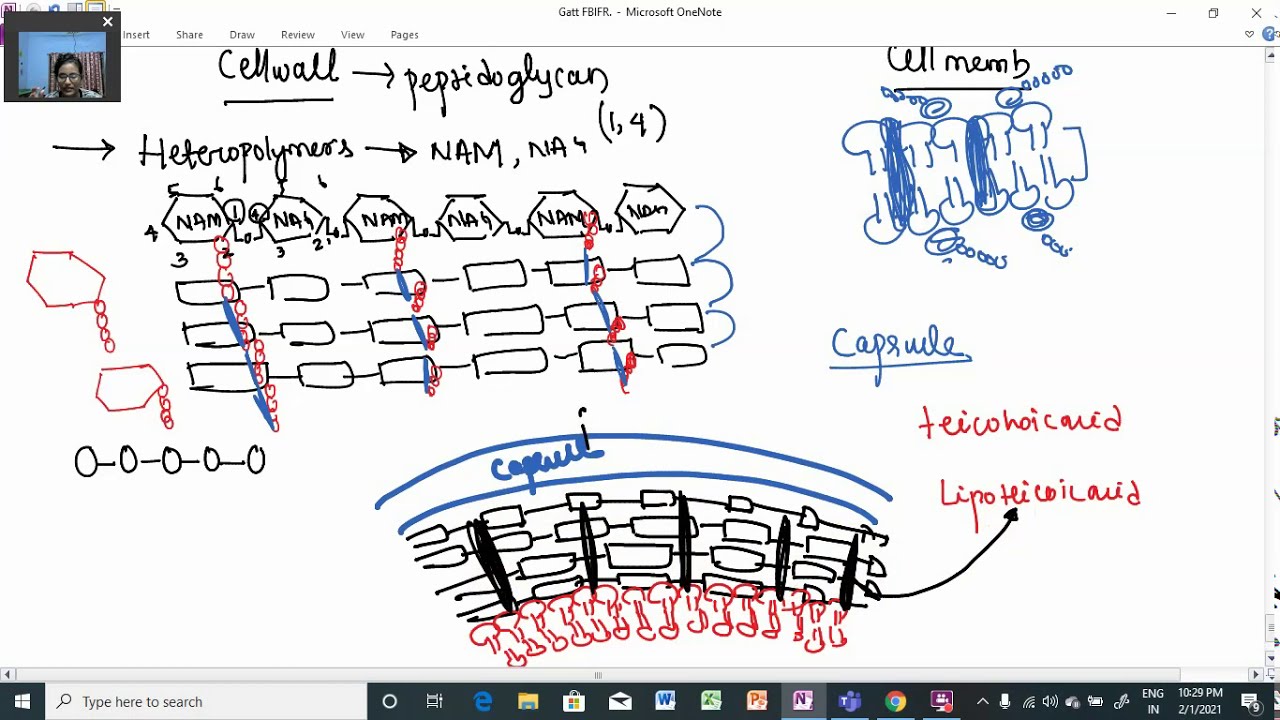 Gatt FBIFR. - Microsoft OneNote
Insert Share Draw Review View Pages
Cell wall → peptidoglycan
Cell memb
→ Heteropolymers → NAM, NAG (1,4)
5 6 5 6
NAM 1 4 NAG NAM NAG NAM NAM
4 3 2 3 2
Capsule
teicohoic acid
capsule
Lipoteicoic acid
Type here to search
ENG
IN
10:29 PM
2/1/2021
9